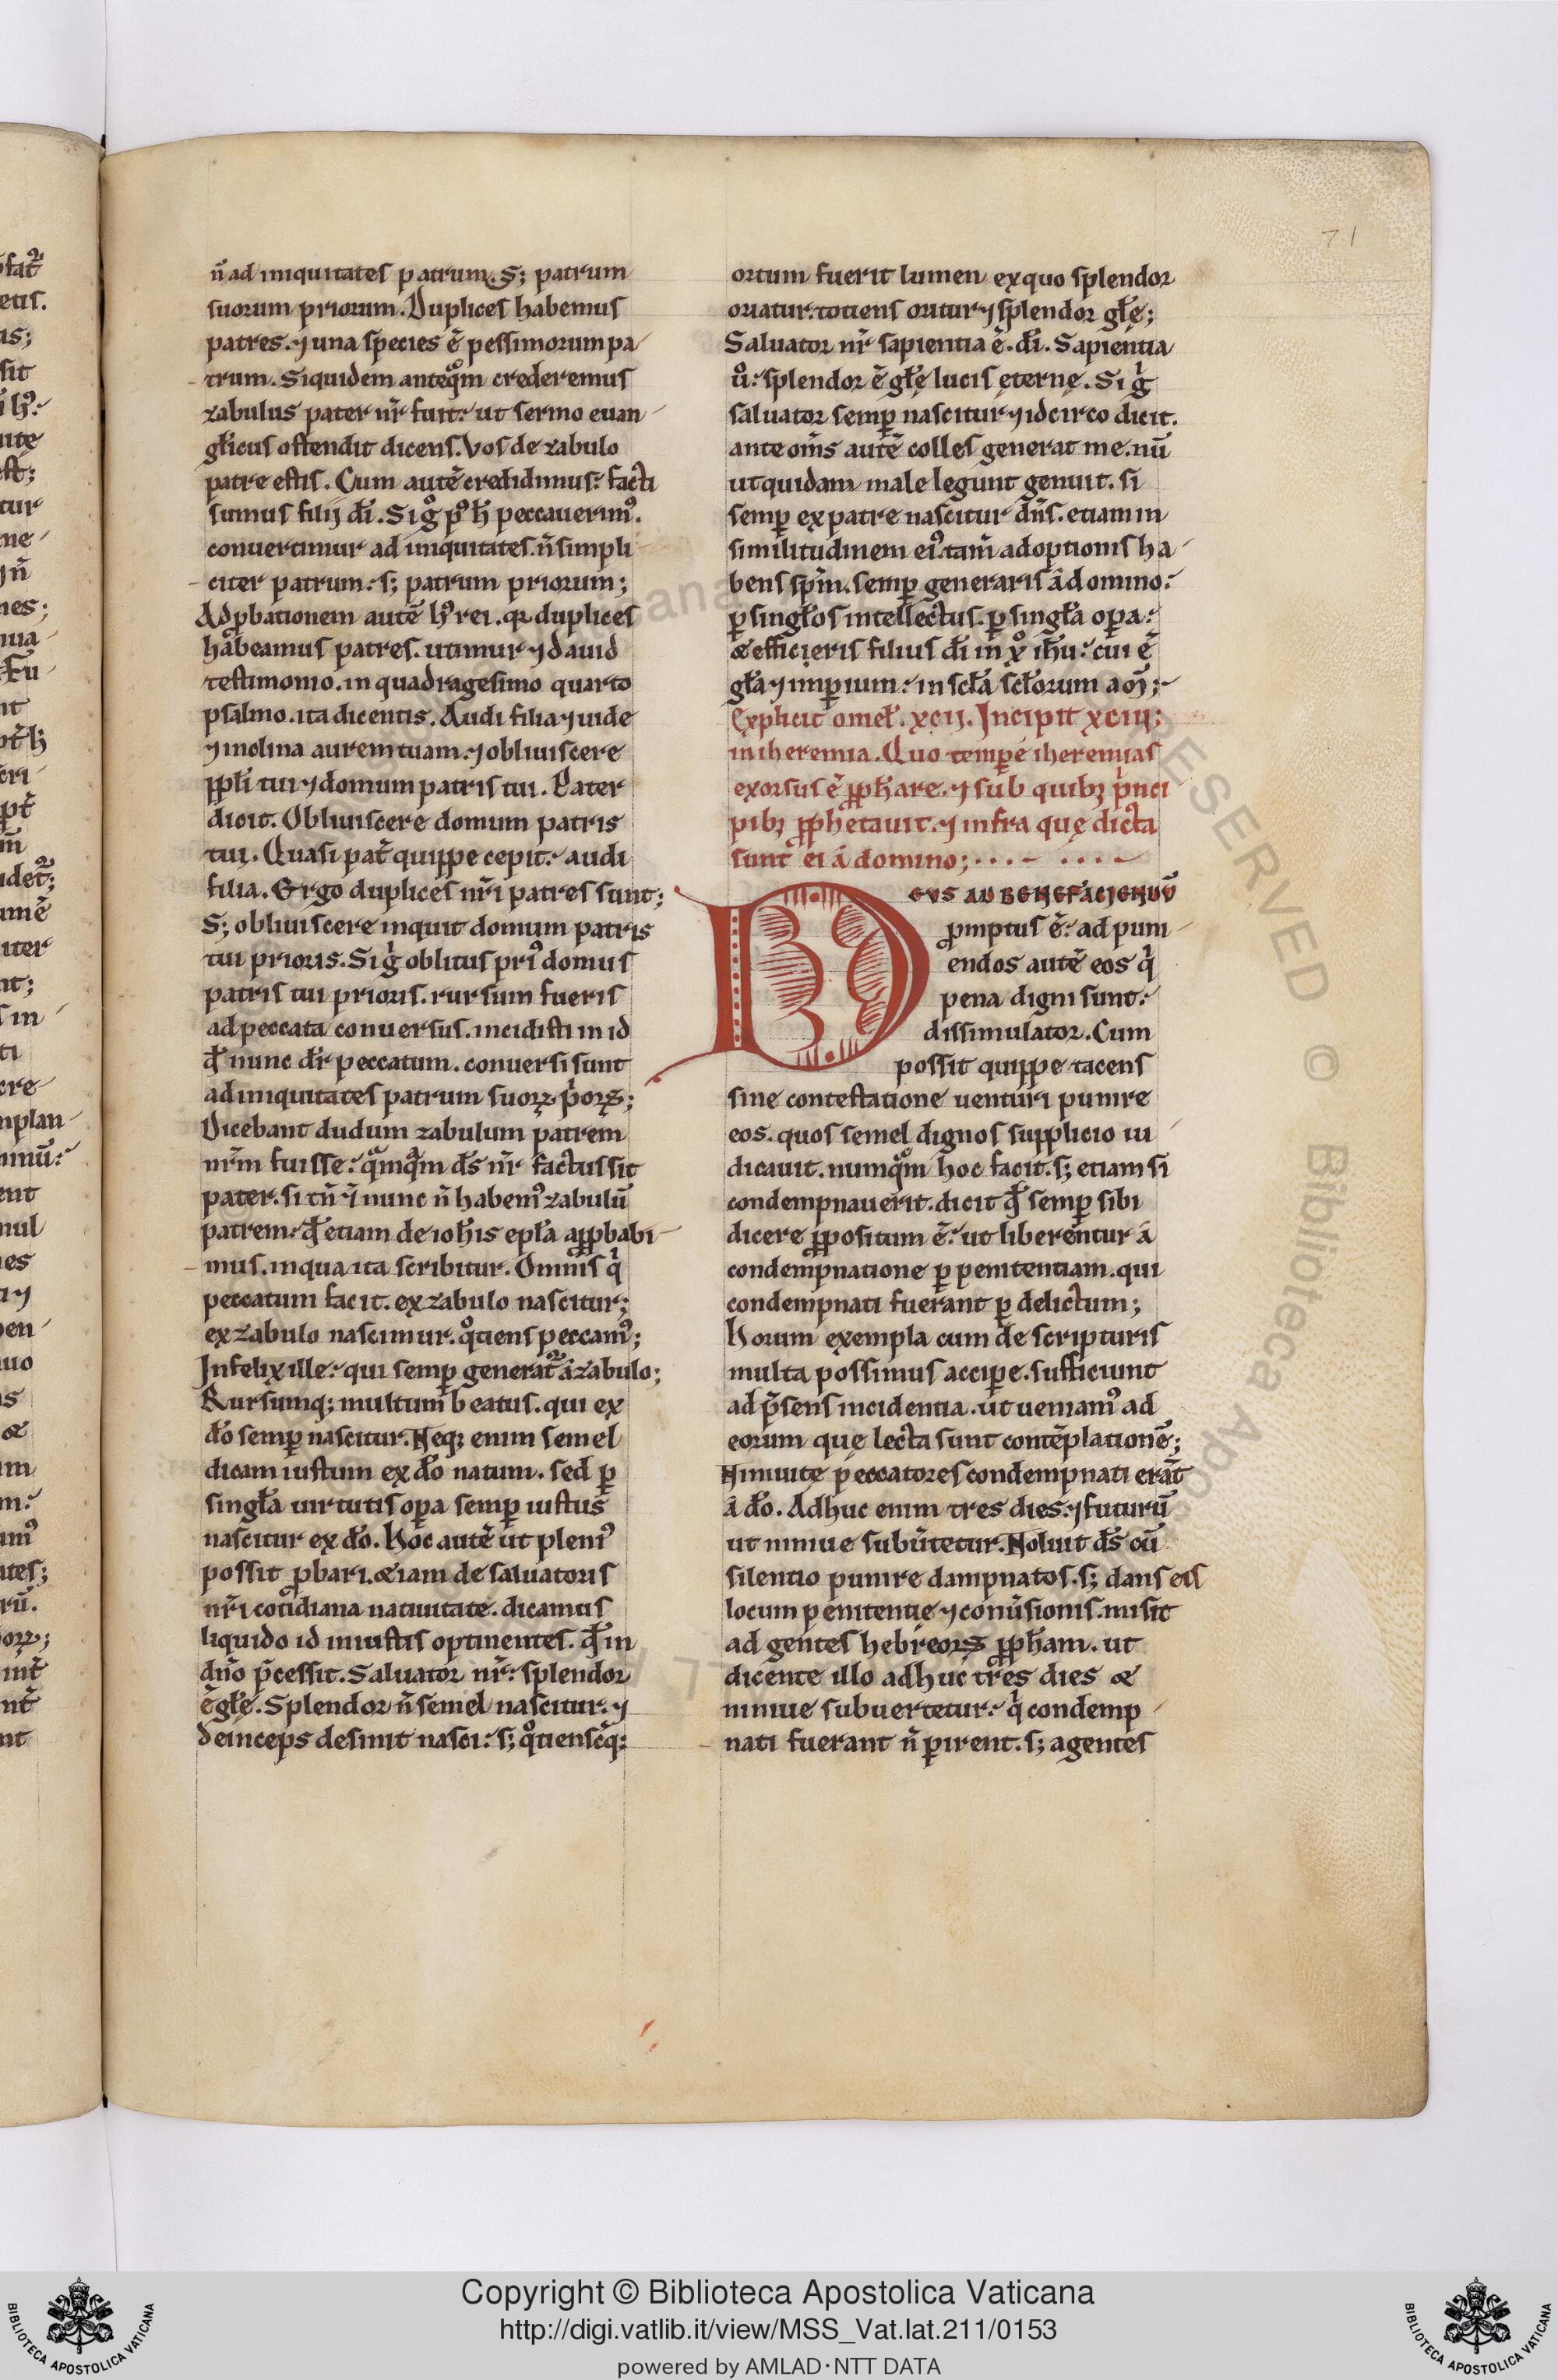 71
n̄ ad iniquitates patrum. S; patrum
suorum priorum. Duplices habemus
patres. ⁊ una species ē pessimorum pa
trum. Siquidem anteqͦm crederemus
zabulus pater nr̄ fuit. ut sermo euan
gl̄icus ostendit dicens. Vos de zabulo
patre estis. Cum autē credidimus. facti
sumus filij dī. Si gͦ pꝰ h̄ peccauerimꝰ.
conuertimur ad iniquitates. n̄ simpli
citer patrum. s; patrum priorum;
Ad ꝓbationem autē hꝰ rei. qꝛ duplices
habeamus patres. utimur ⁊ dauid
testimonio. in quadragesimo quarto
psalmo. ita dicentis. Audi filia ⁊ uide
⁊ inclina aurem tuam. ⁊ obliuiscere
ppl̄i tui ⁊ domum patris tui. Pater
dicit. Obliuiscere domum patris
tui. Quasi pat̄ quippe cepit. audi
filia. Ergo duplices nr̄i patres sunt;
S; obliuiscere inquit domum patris
tui prioris. Si gͥ oblitus priꝰ domus
patris tui prioris. rursum fueris
ad peccata conuersus. incidisti in id
qd̄ nunc dr̄ peccatum. conuersi sunt
ad iniquitates patrum suoꝝ pͥoꝝ;
Dicebant dudum zabulum patrem
nr̄m fuisse. qͣmqͣm ds̄ nr̄ factus sit
pater. si tn̄ ⁊ nunc n̄ habemꝰ zabulū
patrem. qd̄ etiam de ioh̄is epl̄a apꝓbabi
mus. in qua ita scribitur. Omnis qͥ
peccatum facit. ex zabulo nascitur;
ex zabulo nascimur. qͦtiens peccamꝰ;
Infelix ille. qui semꝑ generat᷑ á zabulo;
Rursumq; multum beatus. qui ex
dō semꝑ nascitur. Neq; enim semel
dicam iustum ex dō natum. sed ꝑ
singl̄a uirtutis oꝑa semꝑ iustus
nascitur ex dō. Hoc autē ut pleniꝰ
possit ꝓbari. etiam de saluatoris
nr̄i cotidiana natiuitate. dicamus
liquido id in iustis optinentes. qd̄ in
dn̄o p̄cessit. Saluator nr̄. splendor
ē gl̄ę. Splendor n̄ semel nascitur. ⁊
deinceps desinit nasci. s; qͦtienscq;
ortum fuerit lumen ex quo splendor
oriatur. totiens oritur ⁊ splendor gl̄ę;
Saluator nr̄ sapientia ē. dī. Sapientia
uͦ. splendor ē gl̄ę lucis ęternę. Si gͥ
saluator semꝑ nascitur ⁊ idcirco dicit.
ante om̄s autē colles generat me. nū
ut quidam male legunt genuit. si
semꝑ ex patre nascitur dn̄s. etiam in
similitudinem eiꝰ. tam̄ adoptionis ha
bens spm̄. semꝑ generaris á domino.
ꝑ singl̄os intellectus. ꝑ singl̄a oꝑa.
& efficieris filius dī in xͦ ihū. cui ē
gl̄a ⁊ imꝑium. in scl̄a scl̄orum am̄;
Explicit omel̄. xcij. Incipit xciij;
in iheremia. Quo temꝑe iheremias
exorsus ē ꝓph̄are. ⁊ sub quibꝫ pͥnci
pibꝫ ꝓphetauit. ⁊ infra quę dicta
sunt ei á domino;
DEVS AD BENEFACIENDV̄
ꝓmptus ē. ad puni
endos autē eos qͥ
pena digni sunt.
dissimulator. Cum
possit quippe tacens
sine contestatione uenturi punire
eos. quos semel dignos supplicio iu
dicauit. numqͦm hoc facit. s; etiam si
condempnauerit. dicit qd̄ semꝑ sibi
dicere ꝓpositum ē. ut liberentur á
condempnatione ꝑ penitentiam. qui
condempnati fuerant ꝑ delictum;
Horum exempla cum de scripturis
multa possimus acciꝑe. sufficiunt
ad p̄sens incidentia. ut ueniamꝰ ad
eorum quę lecta sunt contēplationē;
Niniuitę peccatores condempnati erāt
á dō. Adhuc enim tres dies. ⁊ futurū
ut niniue subūtetur. Noluit ds̄ cū
silentio punire dampnatos. s; dans eis
locum penitentie ⁊ conūsionis. misit
ad gentes hebreoꝝ ꝓph̄am. ut
dicente illo adhuc tres dies &
niniue subuertetur. qͥ condemp
nati fuerant n̄ ꝑirent. s; agentes
Copyright © Biblioteca Apostolica Vaticana
http://digi.vatlib.it/view/MSS_Vat.lat.211/0153
powered by AMLAD·NTT DATA
BIBLIOTECA APOSTOLICA VATICANA
BIBLIOTECA APOSTOLICA VATICANA